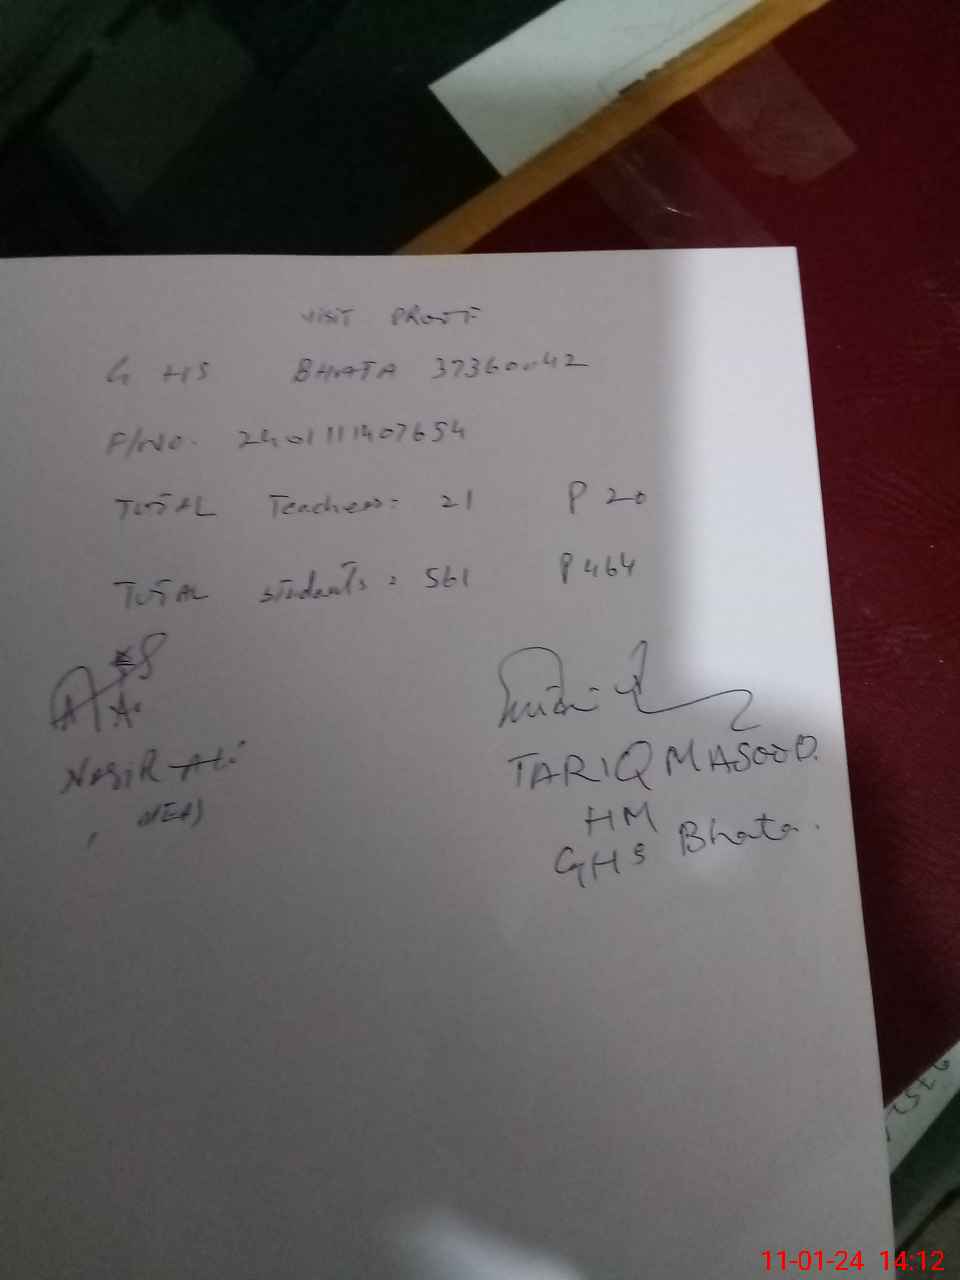 VISIT PROOF
G HS BHATA 37360042
F/No. 2401111407654
TOTAL Teachers: 21 P 20
TOTAL students: 561 P 464
NASIR Ali
(MEA)
TARIQ MASOOD.
HM
GHS Bhata.
11-01-24 14:12